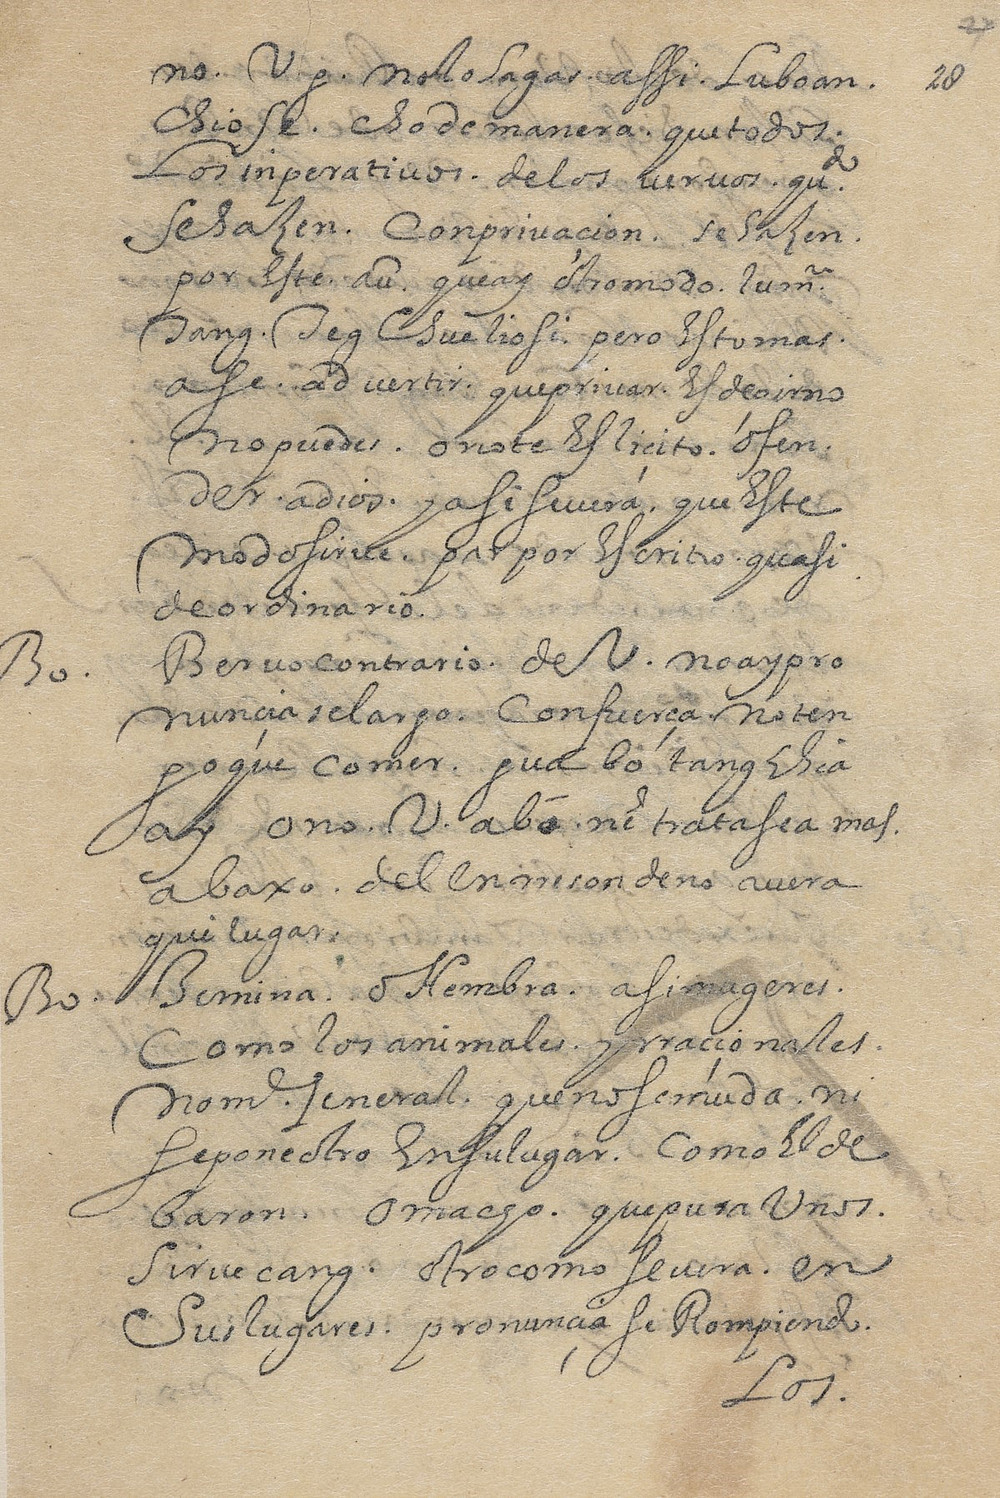 28
no. V g. nolo hagas. assi. Luboan.
Chiose. chodemanera. quetodos.
Los inperativos. delos vervos. qu.do
Sehazen. Conprivacion. sehazen.
por Este. au. queay otromodo. lum.
Tang. Teg Chueliosi. pero Estomas.
ase. advertir. queprivar. Esdecirno
nopuedes. onote Eslicito. ofen.
der. adios. yasi severá. que Este
modosirve. par por Escrito. quasi
deordinario.
Bo. Bervocontrario. de V. noaypro
nunciaselargo. Confuerça. noten
goque comer. gua bo tang Chia
ay ono. V. abo. tratasea mas.
abaxo. del deno avera
qui lugar.
Bo. Bemina. o Hembra. asi mugeres.
Como los animales. yrracionales.
nom.e Jeneral. quenosemuda. ni
seponeotro Ensulugar. Como El de
baron. Omacho. quepara Unos.
Sirve cang. otrocomo severa. en
Suslugares. pronunciase Rompiendo.
Los.